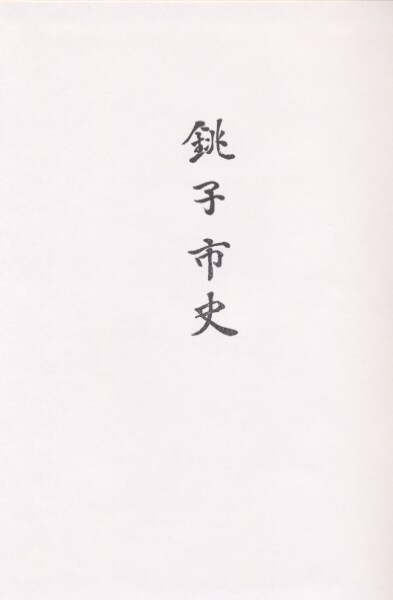 銚子市史